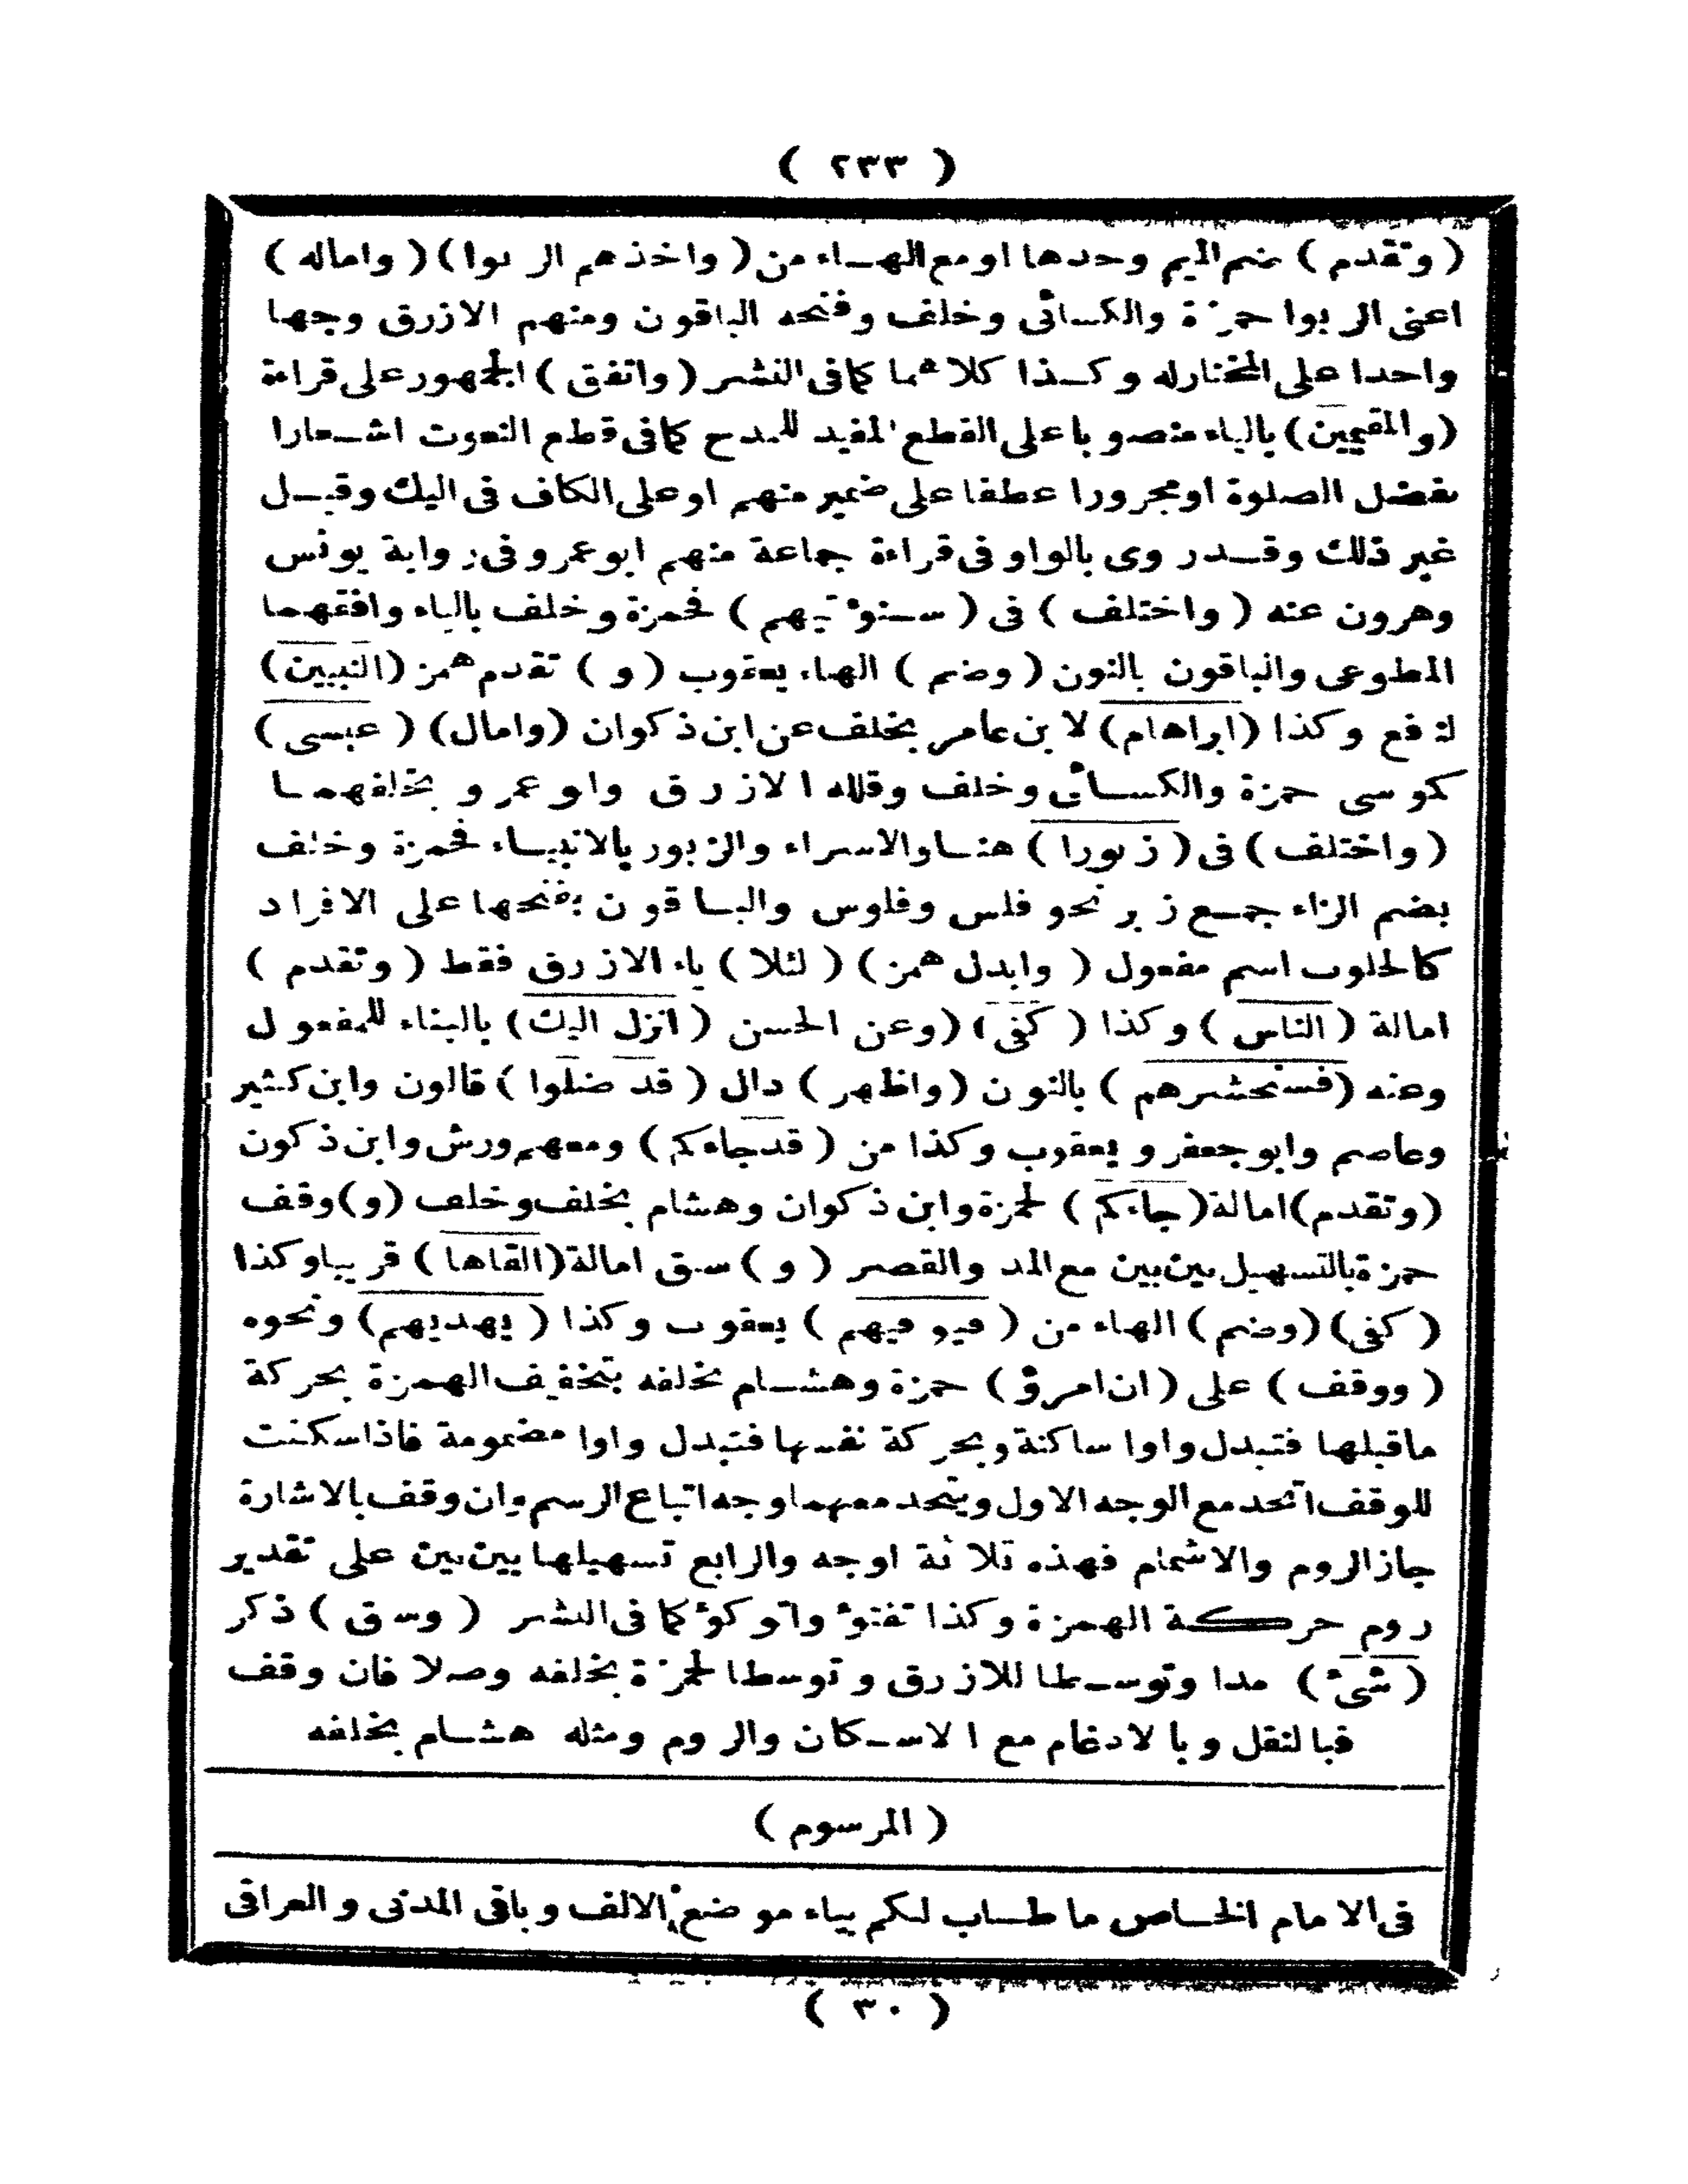 ( ٢٣٣ )
( وتقدم ) ضم الميم وحدها او مع الهاء من ( واخذهم الربوا ) ( واماله )
اعنى الربوا حمزة والكسائى وخلف وفتحه الباقون ومنهم الازرق وجها
واحدا على المختار له وكذا كلاهما كما فى النشر ( واتفق ) الجمهور على قراءة
( والمقيمين ) بالياء منصوبا على القطع المفيد للمدح كما فى قطع النعوت اشعارا
بفضل الصلوة او مجرورا عطفا على ضمير منهم او على الكاف فى اليك وقيل
غير ذلك وقد روى بالواو فى قراءة جماعة منهم ابو عمرو فى رواية يونس
وهرون عنه ( واختلف ) فى ( سنؤتيهم ) فحمزة وخلف بالياء وافقهما
المطوعى والباقون بالنون ( وضم ) الهاء يعقوب ( و ) تقدم همز ( النبيين )
لنافع وكذا ( ابراهام ) لابن عامر بخلف عن ابن ذكوان ( وامال ) ( عيسى )
كموسى حمزة والكسائى وخلف وقلله الازرق وابو عمرو بخلفهما
( واختلف ) فى ( زبورا ) هنا والاسراء والزبور بالانبياء فحمزة وخلف
بضم الزاء جمع زبر نحو فلس وفلوس والباقون بفتحها على الافراد
كالحلوب اسم مفعول ( وابدل همز ) ( لئلا ) ياء الازرق فقط ( وتقدم )
امالة ( الناس ) وكذا ( كفى ) ( وعن الحسن ( انزل اليك ) بالبناء للمفعول
وعنه ( فسنحشرهم ) بالنون ( واظهر ) دال ( قد ضلوا ) قالون وابن كثير
وعاصم وابو جعفر و يعقوب وكذا من ( قد جاءكم ) ومعهم ورش وابن ذكون
( وتقدم ) امالة ( جاءكم ) لحمزة وابن ذكوان وهشام بخلف وخلف ( و ) وقف
حمزة بالتسهيل بين بين مع المد والقصر ( و ) سبق امالة ( القاها ) قريبا وكذا
( كفى ) ( وضم ) الهاء من ( فيوفيهم ) يعقوب وكذا ( يهديهم ) ونحوه
( ووقف ) على ( ان امرؤ ) حمزة وهشام بخلفه بتخفيف الهمزة بحركة
ماقبلها فتبدل واوا ساكنة وبحركة نفسها فتبدل واوا مضمومة فاذا سكنت
للوقف اتحد مع الوجه الاول ويتحد معهما وجه اتباع الرسم وان وقف بالاشارة
جاز الروم والاشمام فهذه ثلاثة اوجه والرابع تسهيلها بين بين على تقدير
روم حركة الهمزة وكذا تفتؤ واتوكؤ كما فى النشر ( وسبق ) ذكر
( شئ ) مدا وتوسطا للازرق و توسطا لحمزة بخلفه وصلا فان وقف
فبالنقل و بالادغام مع الاسكان والروم ومثله هشام بخلفه
( المرسوم )
فى الامام الخاص ما طاب لكم بياء موضع الالف و باقى المدنى والعراقى
( ٣٠ )